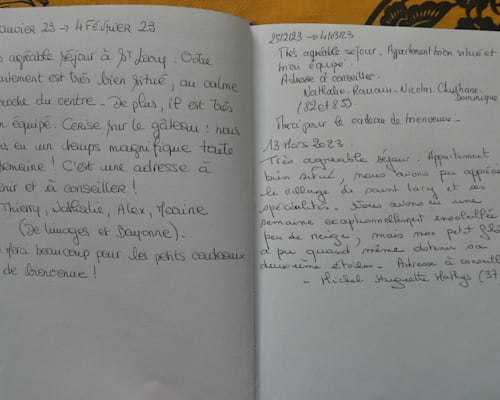 anvier 23 → 4 Février 23
s agréable séjour à St Lary. Votre
artement est très bien situé, au calme
roche du centre. De plus, il est très
n équipé. Cerise sur le gâteau : nous
ns eu un temps magnifique toute
semaine ! C'est une adresse à
enir et à conseiller !
Thierry, Nathalie, Alex,
(De Limoges et Bayonne).
Merci beaucoup pour les petits cadeaux
de bienvenue !
25/2/23 → 4/03/23
Très agréable séjour. Appartement bien situé et
bien équipé.
Adresse à conseiller.
Nathalie. Romain. Nicolas.
Dominique
(82 et 85).
Merci pour le cadeau de bienvenue.
13 Mars 2023.
Très agréable séjour. Appartement
bien situé, nous avons pu appréc
le village de saint lary et ses
spécialités. Nous avons eu une
semaine exceptionnellement ensoleillée
peu de neige, mais mon petit fils
a pu quand même obtenir sa
deuxième étoile. Adresse à conseill
- Michel Huguette Mathys (37